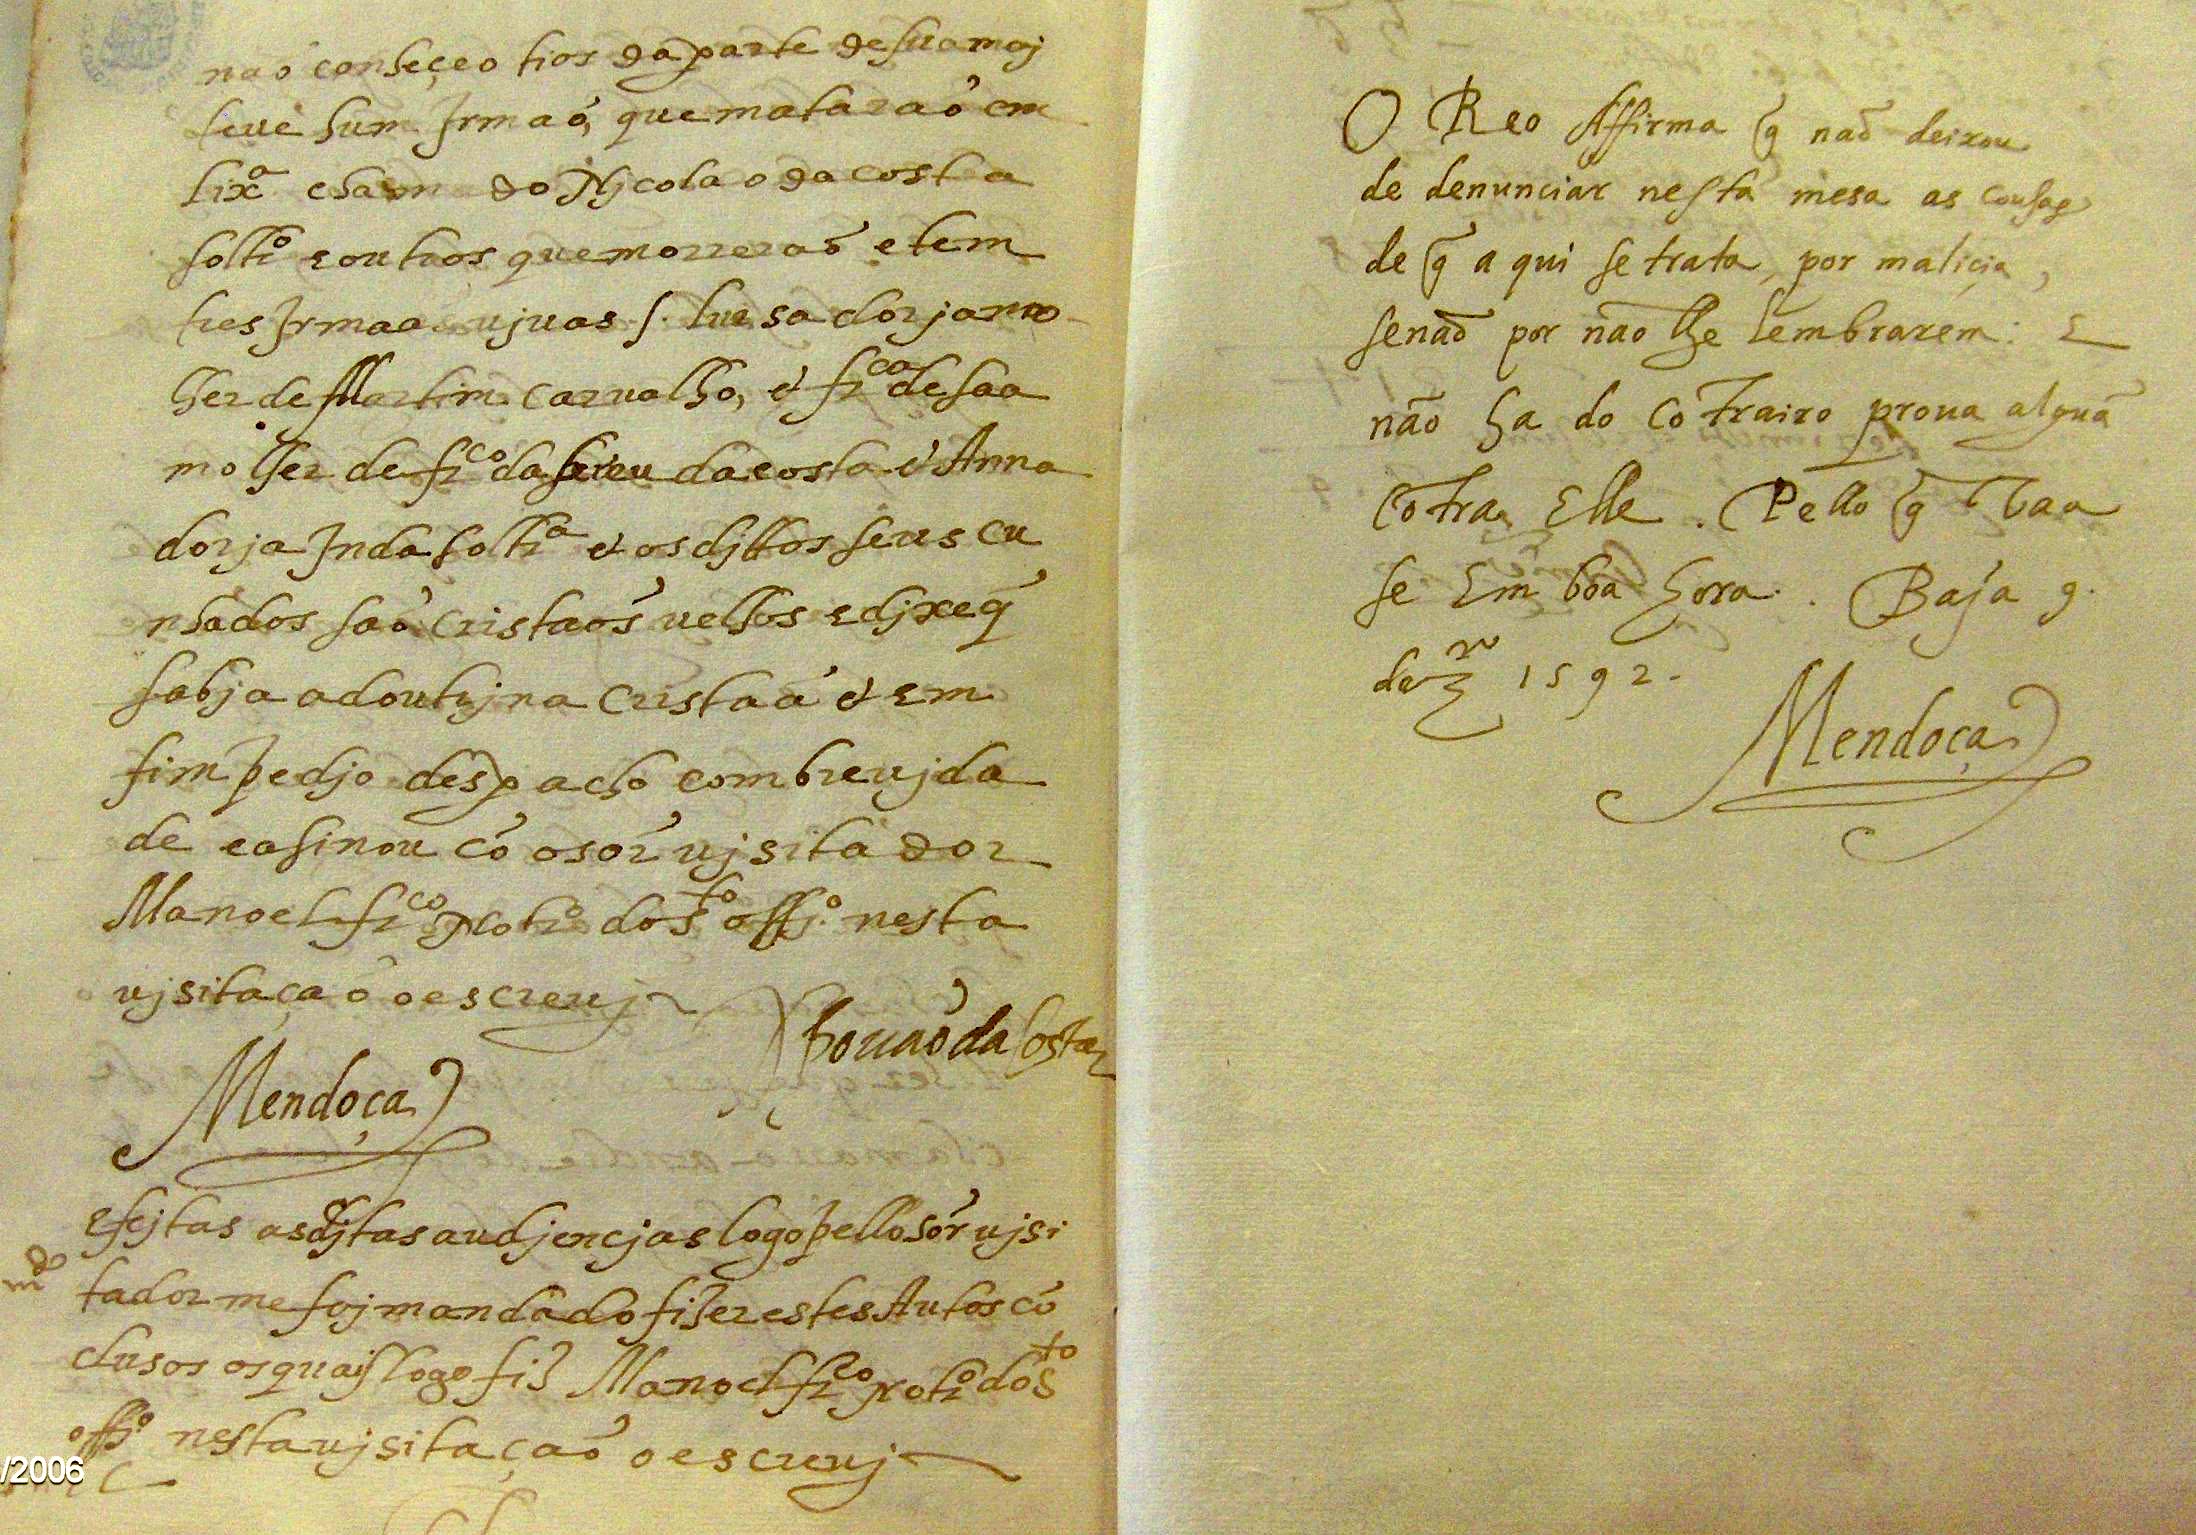 naõ conheçeo tios da parte de sua maj
teue hum Jrmaõ, que mataraõ em
lixª chamado Njcolao da costa
soltrº e outros que morreraõ e tem
tres Jrmaas ujuas s. luisa dorja mo
lher de Martim Carualho, e frca de saa
molher de frco da da costa e Anna
dorja Jnda soltrª e os djttos seus cu
nhados saõ cristaõs uelhos e djxe q̃
sabja a doutrjna cristaã e em
fim pedjo despacho com breujda
de e asinou cõ o sor ujsitador
Manoel frco Notrº do sto offjº nesta
ujsitaçaõ o escreuj
da Costa
Mendoça
E fejtas as djtas audjencjas logo pello sor ujsi
mdo
tador me foj mandado fizer estes Autos cõ
clusos os quajs logo fiz Manoel frco Notrº do sto
offjº nesta ujsitaçaõ o escreuj
/2006
O Reo Affirma q̃ naõ deixou
de denunciar nesta mesa as cousas
de q̃ a qui se trata, por malicia,
senaõ por não lhe lembrarem: E
não ha do cõtrairo proua alguã
Cõtra Elle. Pello q̃ Vaa
se Em boa hora. Baja 9.
de 1592.
Mendoça